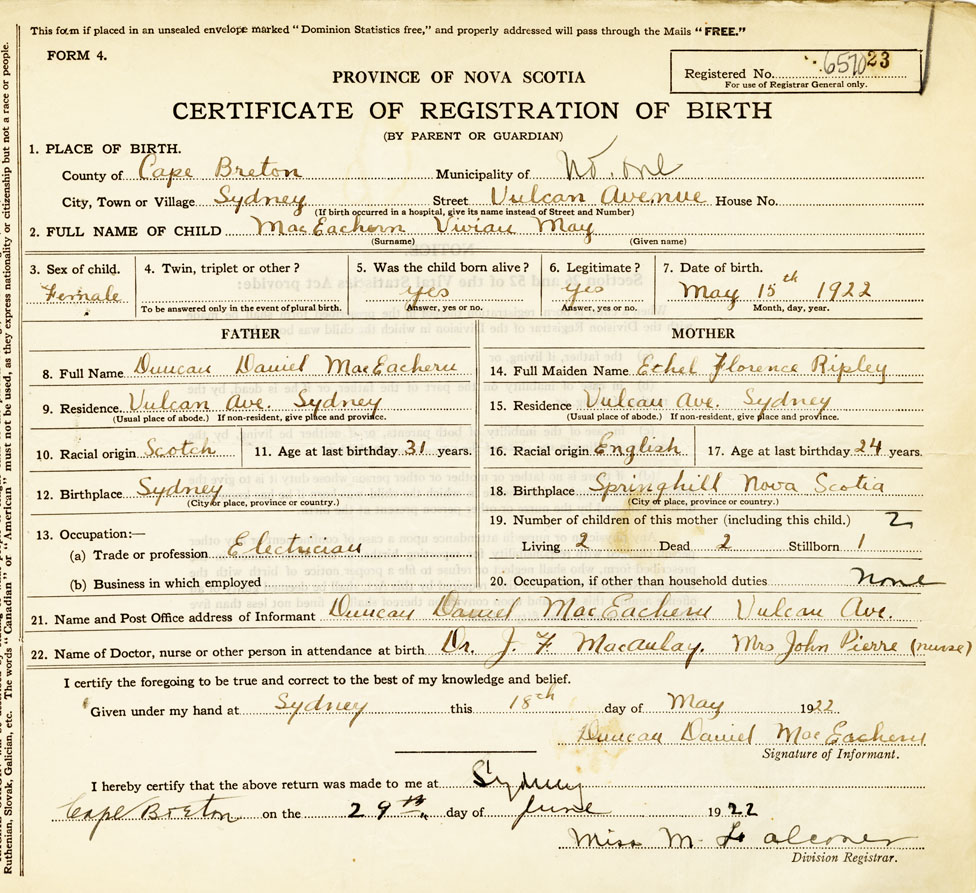 This form if placed in an unsealed envelope marked "Dominion Statistics free," and properly addressed will pass through the Mails "FREE."
FORM 4.
Registered No. 657023
For use of Registrar General only.
PROVINCE OF NOVA SCOTIA
CERTIFICATE OF REGISTRATION OF BIRTH
(BY PARENT OR GUARDIAN)
1. PLACE OF BIRTH.
County of Cape Breton Municipality of No. one
City, Town or Village Sydney Street Vulcan Avenue House No.
(If birth occurred in a hospital, give its name instead of Street and Number)
2. FULL NAME OF CHILD MacEachern Vivian May
(Surname) (Given name)
3. Sex of child. Female
4. Twin, triplet or other?
To be answered only in the event of plural birth.
5. Was the child born alive? yes
Answer, yes or no.
6. Legitimate? yes
Answer, yes or no.
7. Date of birth. May 15th 1922
Month, day, year.
FATHER
8. Full Name Duncan Daniel MacEachern
9. Residence Vulcan Ave. Sydney
(Usual place of abode.) If non-resident, give place and province.
10. Racial origin Scotch 11. Age at last birthday 31 years.
12. Birthplace Sydney
(City or place, province or country.)
13. Occupation:—
(a) Trade or profession Electrician
(b) Business in which employed
MOTHER
14. Full Maiden Name Ethel Florence Ripley
15. Residence Vulcan Ave. Sydney
(Usual place of abode.) If non-resident, give place and province.
16. Racial origin English 17. Age at last birthday 24 years.
18. Birthplace Springhill Nova Scotia
(City or place, province or country.)
19. Number of children of this mother (including this child.) 2
Living 2 Dead 2 Stillborn 1
20. Occupation, if other than household duties none
21. Name and Post Office address of Informant Duncan Daniel MacEachern Vulcan Ave.
22. Name of Doctor, nurse or other person in attendance at birth Dr. J. F. Macaulay. Mrs John Pierre (nurse)
I certify the foregoing to be true and correct to the best of my knowledge and belief.
Given under my hand at Sydney this 18th day of May 1922
Duncan Daniel MacEachern
Signature of Informant.
I hereby certify that the above return was made to me at Sydney
Cape Breton on the 29th day of June 1922
Miss M. Falconer
Division Registrar.
Ruthenian, Slovak, Galician, etc. The words "Canadian" or "American" must not be used, as they express nationality or citizenship but not a race or people.